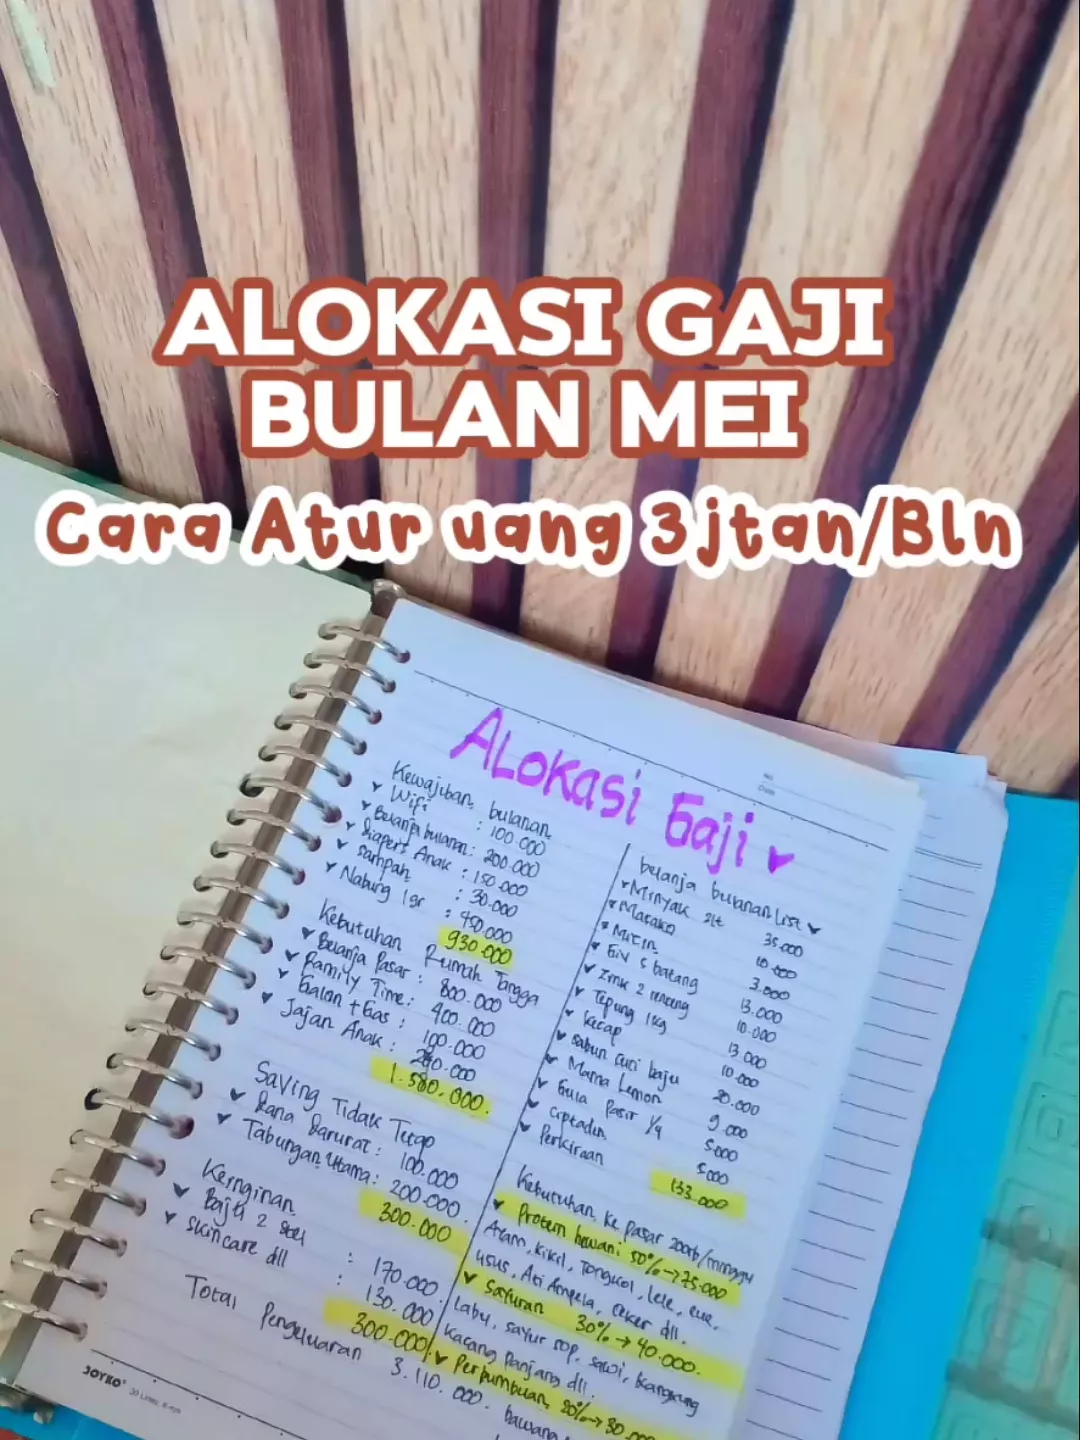 ALOKASI GAJI
BULAN MEI
Cara Atur uang 3jtan/Bln
ALOKASI Gaji
Kewajiban bulanan
Wifi : 100.000
Belanja bulanan : 200.000
Diapers Anak : 150.000
Sampah : 30.000
Nabung 1gr : 450.000
930.000
Kebutuhan Rumah Tangga
Belanja Pasar : 800.000
Family Time : 400.000
Galon + Gas : 100.000
Jajan Anak :
1.580.000.
Saving Tidak Tetap
Dana Darurat : 100.000
Tabungan Utama : 200.000.
300.000
Keinginan
Baju 2 stel : 170.000
Skincare dll : 130.000
300.000
Total Pengeluaran 3.110.000.
belanja bulanan List
Minyak 2lt 35.000
Masako 10.000
Micin 3.000
Giv 5 batang 13.000
Zink 2 renceng 10.000
Tepung 1kg 13.000
kecap 10.000
Sabun cuci baju 20.000
Mama Lemon 9.000
Gula Pasir 1/4 5.000
Ciptadent 5.000
Perkiraan 133.000
Kebutuhan ke pasar 200rb/minggu
Protein hewani 50% → 75.000
Ayam, kikil, Tongkol, lele, cue,
usus, Ati Ampela, ceker dll.
Sayuran 30% → 40.000.
Labu, sayur sop, sawi, kangkung
kacang panjang dll.
Perbumbuan 20% → 30.000
bawang
JOYKO